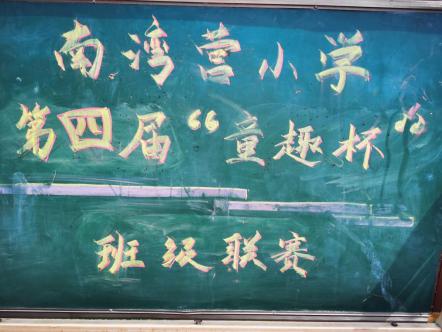 南湾营小学
第四届“童趣杯”
班级联赛